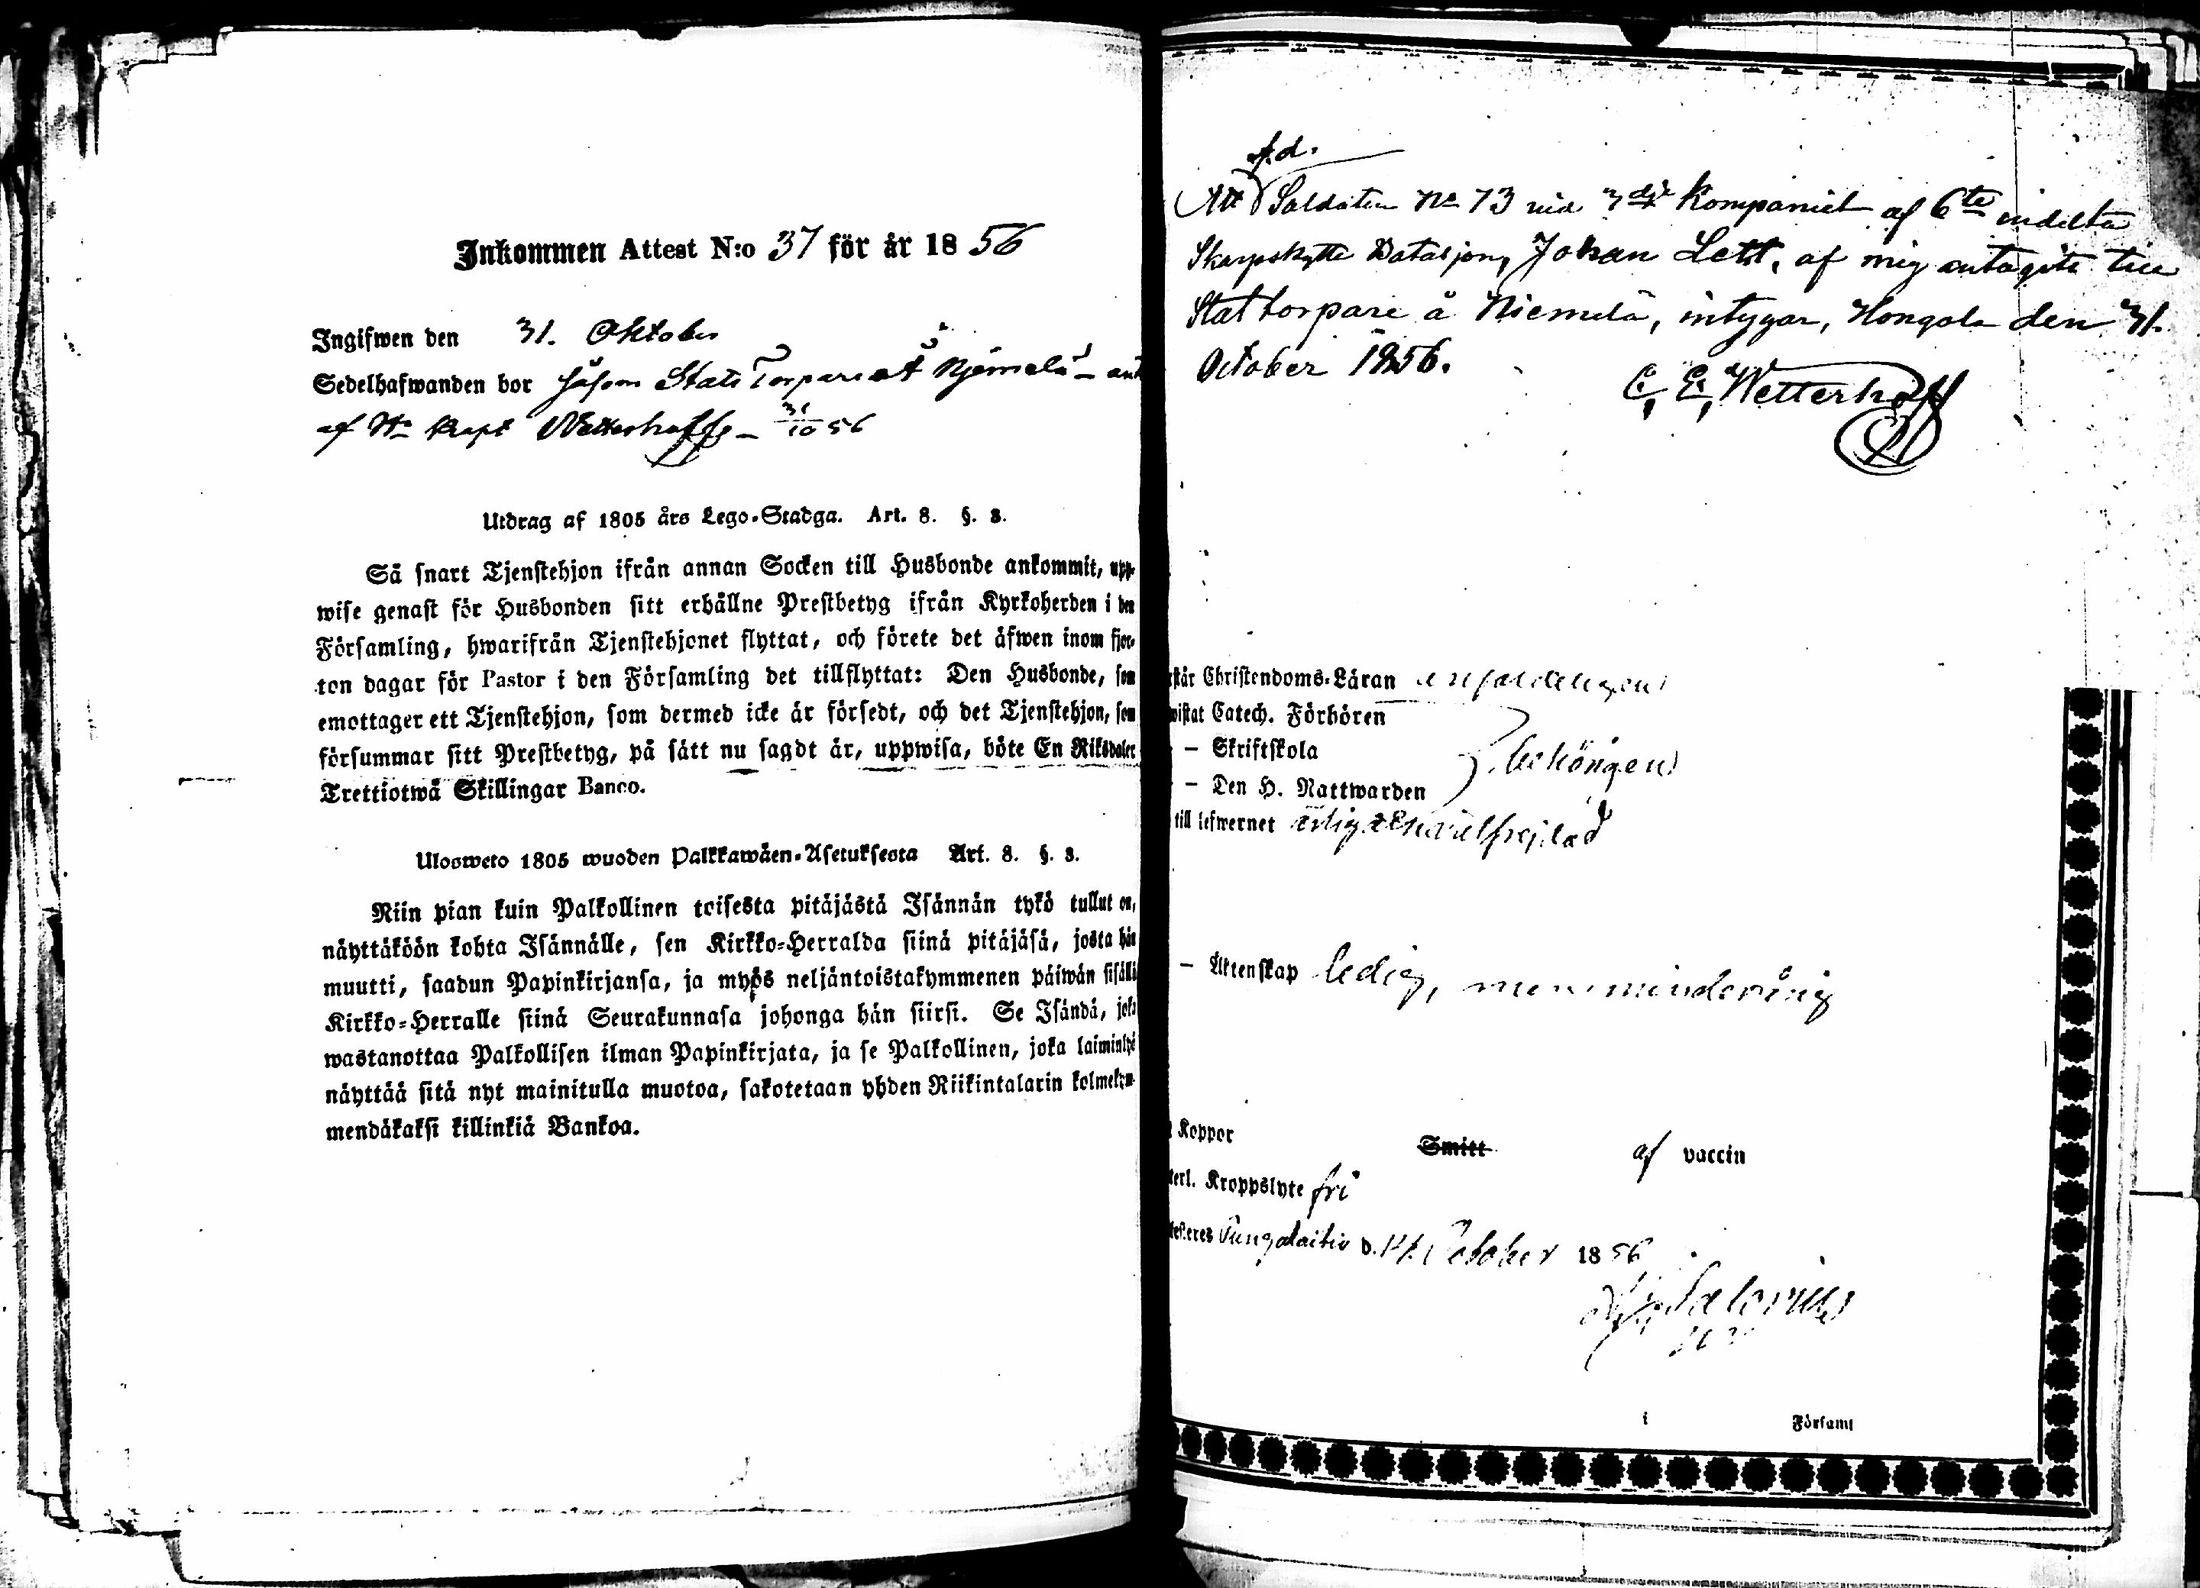 Inkommen Attest N:o 37 för år 1856
Ingifwen den 31. Oktober
Sedelhafwanden bor såsom Stats Torpare å Njemelä –
af Hr Kapt Wetterhoff – 31/10 56
Utdrag af 1805 års Lego-Stadga. Art. 8. §. 3.
Så snart Tjenstehjon ifrån annan Socken till Husbonde ankommit, upp-
wise genast för Husbonden sitt erhållne Prestbetyg ifrån Kyrkoherden i den
Församling, hwarifrån Tjenstehjonet flyttat, och förete det äfwen inom fjor-
ton dagar för Pastor i den Församling det tillflyttat: Den Husbonde, som
emottager ett Tjenstehjon, som dermed icke är försedt, och det Tjenstehjon, som
försummar sitt Prestbetyg, på sätt nu sagdt är, uppwisa, böte En Riksdaler
Trettiotwå Skillingar Banco.
Ulosweto 1805 wuoden Palkkawäen-Asetuksesta Art. 8. §. 3.
Niin pian kuin Palkollinen toisesta pitäjästä Isännän tykö tullut on,
näyttäköön kohta Isännälle, sen Kirkko-Herralda siinä pitäjäsä, josta hän
muutti, saadun Papinkirjansa, ja myös neljäntoistakymmenen päiwän sisällä
Kirkko-Herralle siinä Seurakunnasa johonga hän siirsi. Se Isändä, joka
wastanottaa Palkollisen ilman Papinkirjata, ja se Palkollinen, joka laiminlyö
näyttää sitä nyt mainitulla muotoa, sakotetaan yhden Riikintalarin kolmekym-
mendäkaksi killinkiä Bankoa.
f.d.
Att Soldaten No 73 vid 3dje Kompaniet af 6te indelta
Skarpskytte Bataljon, Johan Lett, af mig antagits till
Stattorpare å Niemelä, intygar, Hongola den 31.
October 1856.
C. E. Wetterhoff
står Christendoms-Läran
wistat Catech. Förhören
– Skriftskola
behörigen
– Den H. Nattwarden
till lefwernet ärlig & wälfrejdad
– Äktenskap ledig, men minderårig
Koppor Smitt af vaccin
terl. Kroppslyte fri
testeres Pungalaitio d. 14 October 1856
Salovius
i Församl